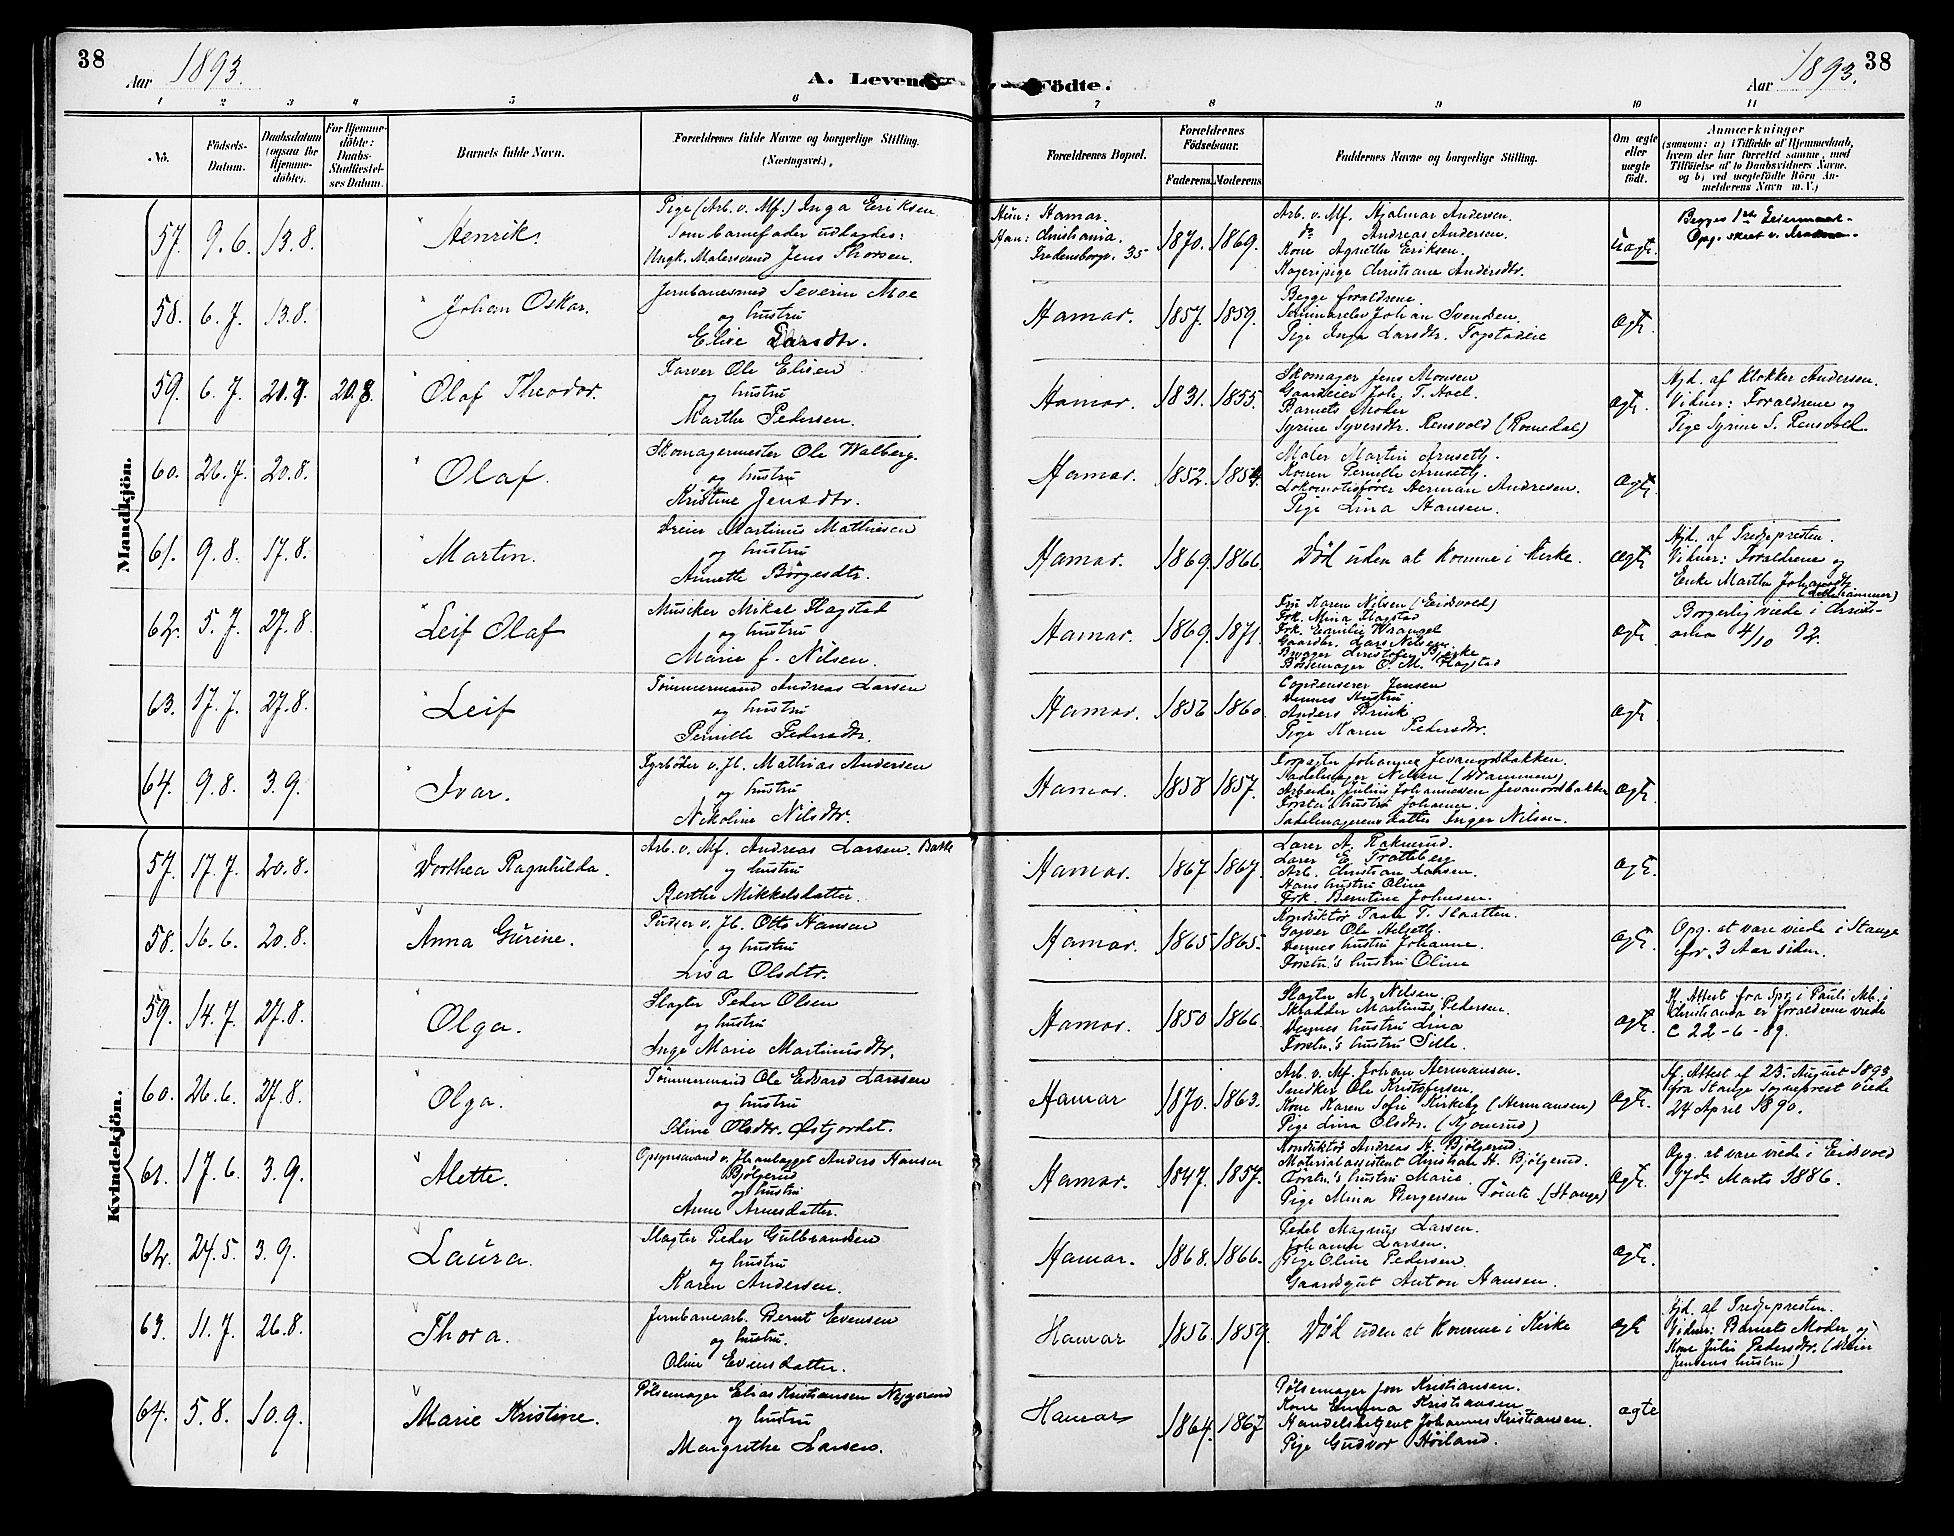 38
Aar 1893.
A. Levende
Födte.
Aar 1893.
38
1 2 3 4 5 6 7 8 9 10 11
No.
Födsels-Datum.
Daabsdatum (ogsaa for Hjemme-döbte).
For Hjemme-döbte: Daabs-Stadfæstel-ses Datum.
Barnets fulde Navn.
Forældrenes fulde Navne og borgerlige Stilling. (Næringsvei.)
Forældrenes Bopæl.
Forældrenes Födselsaar.
Faderens. Moderens.
Faddernes Navne og borgerlige Stilling.
Om ægte eller uægte födt.
Anmærkninger
(saasom: a) i Tilfælde af Hjemmedaab, hvem der har forrettet samme, med Tilföielse af to Daabsvidners Navne. og b) ved uægtefödte Börn An-melderens Navn m. V.)
Mandkjön.
57. 9.6. 13.8. Henrik.
Pige (Arb. v. Mf.) Inga Eriksen
Som barnefader udlagdes:
Ungk. Malersvend Jens Thorsen.
Hun: Hamar.
Han: Christiania.
Fredensborgv. 35
1870. 1869.
Arb. v. Mf. Hjalmar Andersen.
do Andreas Andersen.
Kone Agnethe Eriksen.
Kogeripige Christiane Andersdtr.
uægte.
Begges 1ste Leiermaal.
Opg. skeet v.
58. 6.7. 13.8. Johan Oskar.
Jernbanesmed Severin Moe
og hustru
Elise Larsdtr.
Hamar. 1857. 1859.
Begge forældrene.
Seminarelev Johan Svendsen
Pige Inga Larsdtr. Fogstadeie
ægte.
59. 6.7. 20.7 20.8. Olaf Theodor.
Farver Ole Elisen
og hustru
Marthe Pedersen.
Hamar. 1831. 1855.
Skomager Jens Monsen
Gaardeier Joh. T. Hoel.
Barnets Moder
Syrine Syversdtr. Rensvold (Romedal)
ægte.
Hjd. af Klokker Andersen.
Vidner: Forældrene og
Pige Syrine S. Rensvol.
60. 26.7. 20.8. Olaf.
Skomagermester Ole Walberg.
og hustru
Kristine Jensdtr.
Hamar. 1852. 1854.
Maler Martin Aruseth.
Konen Pernille Aruseth.
Lokomotivfører Herman Andresen.
Pige Lina Hansen.
ægte.
61. 9.8. 17.8. Martin.
Dreier Martinus Mathiesen
og hustru
Annette Börgesdtr.
Hamar. 1869. 1866.
Död uden at komme i Kirke.
ægte
Hjd. af Tredjepresten.
Vidner: Forældrene og
Enke Marthe Johansdtr.
(Lillehammer)
62. 5.7. 27.8. Leif Olaf
Musiker Mikal Flagstad
og hustru
Marie f. Nilsen.
Hamar. 1869. 1871.
Fru Karen Nilsen (Eidsvold)
Frk. Mina Flagstad
Frk. Emilie Wrangel
Gaardbr. Lars Nilsen.
Brygger Christofer Bjerke
Bössemager O. M. Flagstad
ægte
Borgerlig viede i Christi-
ania 4/10 92.
63. 17.7. 27.8. Leif
Tömmermand Andreas Larsen
og hustru
Pernille Pedersdtr.
Hamar. 1856 1860.
Condenserer Jensen
Dennes Hustru
Anders Brink
Pige Karen Pedersdtr.
ægte
64. 9.8. 3.9. Ivar.
Fyrböder v. Jb. Mathias Andersen
og hustru
Nikoline Nilsdtr.
Hamar. 1858 1857.
Forpagter Johannes Jevanordbakken.
Sadelmager Nilsen (Drammen)
Arbeider Julius Johannessen Jevanordbakken
Förstn's hustru Johanne.
Sadelmagerens datter Inger Nilsen.
ægte.
Kvindekjön.
57. 17.7. 20.8. Dorthea Ragnhilda.
Arb. v. Mf. Andreas Larsen. Bakke
og hustru
Berthe Mikkelsdatter.
Hamar. 1867 1867.
Lærer A. Raknerud.
Lærer E. Tratteberg
Arb. Christian Larsen.
Hans hustru Oline
Frk. Berntine Johnsen.
ægte.
58. 16.6. 20.8. Anna Gurine.
Pudser v. Jb. Otto Hansen
og hustru
Lisa Olsdtr.
Hamar. 1865 1865.
Konduktör Paale T. Slaatten.
Garver Ole Helseth.
Dennes hustru Johanne.
Förstn.'s hustru Oline
ægte.
Opg. at være viede i Stange
for 3 Aar siden.
59. 14.7. 27.8. Olga.
Slagter Peder Olsen
og hustru
Inge Marie Martinusdtr.
Hamar. 1850 1866.
Slagter M. Nilsen
Skrædder Martinius Pedersen.
Dennes hustru Lina
Förstn.'s hustru Sille.
ægte.
If. Attest fra Spr. i Pauli Mb. i
Christiania er forældrene viede
C 22-6-89.
60. 26.6. 27.8. Olga.
Tömmermand Ole Edvard Larssen
og hustru
Stine Olsdtr. Østjordet.
Hamar 1870. 1863.
Arb. v. Mf. Johan Hermansen.
Snedker Ole Kristofersen.
Kone Karen Sofie Kirkeby (Hermansen)
Pige Lina Olsdtr. (Njomrud)
ægte.
If. Attest af 23. August 1893
fra Stange Sogneprest viede
24 April 1890.
61. 17.6. 3.9. Alette.
Opsynsmand v. Jbanlægget Anders Hansen
Bjölgerud
og hustru
Anne Arnesdatter.
Hamar. 1847. 1857.
Konduktör Andreas H. Bjölgerud
Materialassistent Christian H. Bjölgerud.
Förstn.'s hustru Marie
Pige Mina Bergersen Tömte (Stange)
ægte.
Opg. at være viede i Eidsvold
17de Marts 1886.
62. 24.5. 3.9. Laura.
Slagter Peder Gulbrandsen
og hustru
Karen Andersen.
Hamar. 1868. 1866.
Pedel Magnus Larsen.
Johanne Larsen.
Pige Oline Pedersen.
Gaardsgut Anton Hansen.
ægte.
63. 11.7. 26.8. Thora.
Jernbanearb. Bernt Evensen
og hustru.
Oline Evensdatter.
Hamar 1856. 1859.
Död uden at komme i Kirke
ægte
Hjd. af Tredjepresten.
Vidner: Barnets Moder og
Kone Julie Pedersdtr. (
Jensens hustru)
64. 5.8. 10.9. Marie Kristine.
Pölsemager Elias Kristiansen Nygaard
og hustru
Margrethe Larsen.
Hamar 1864. 1867
Pölsemager Jon Kristiansen.
Kone Emma Kristiansen
Handelsbetjent Johannes Kristiansen.
Pige Gudvor Höiland.
ægte